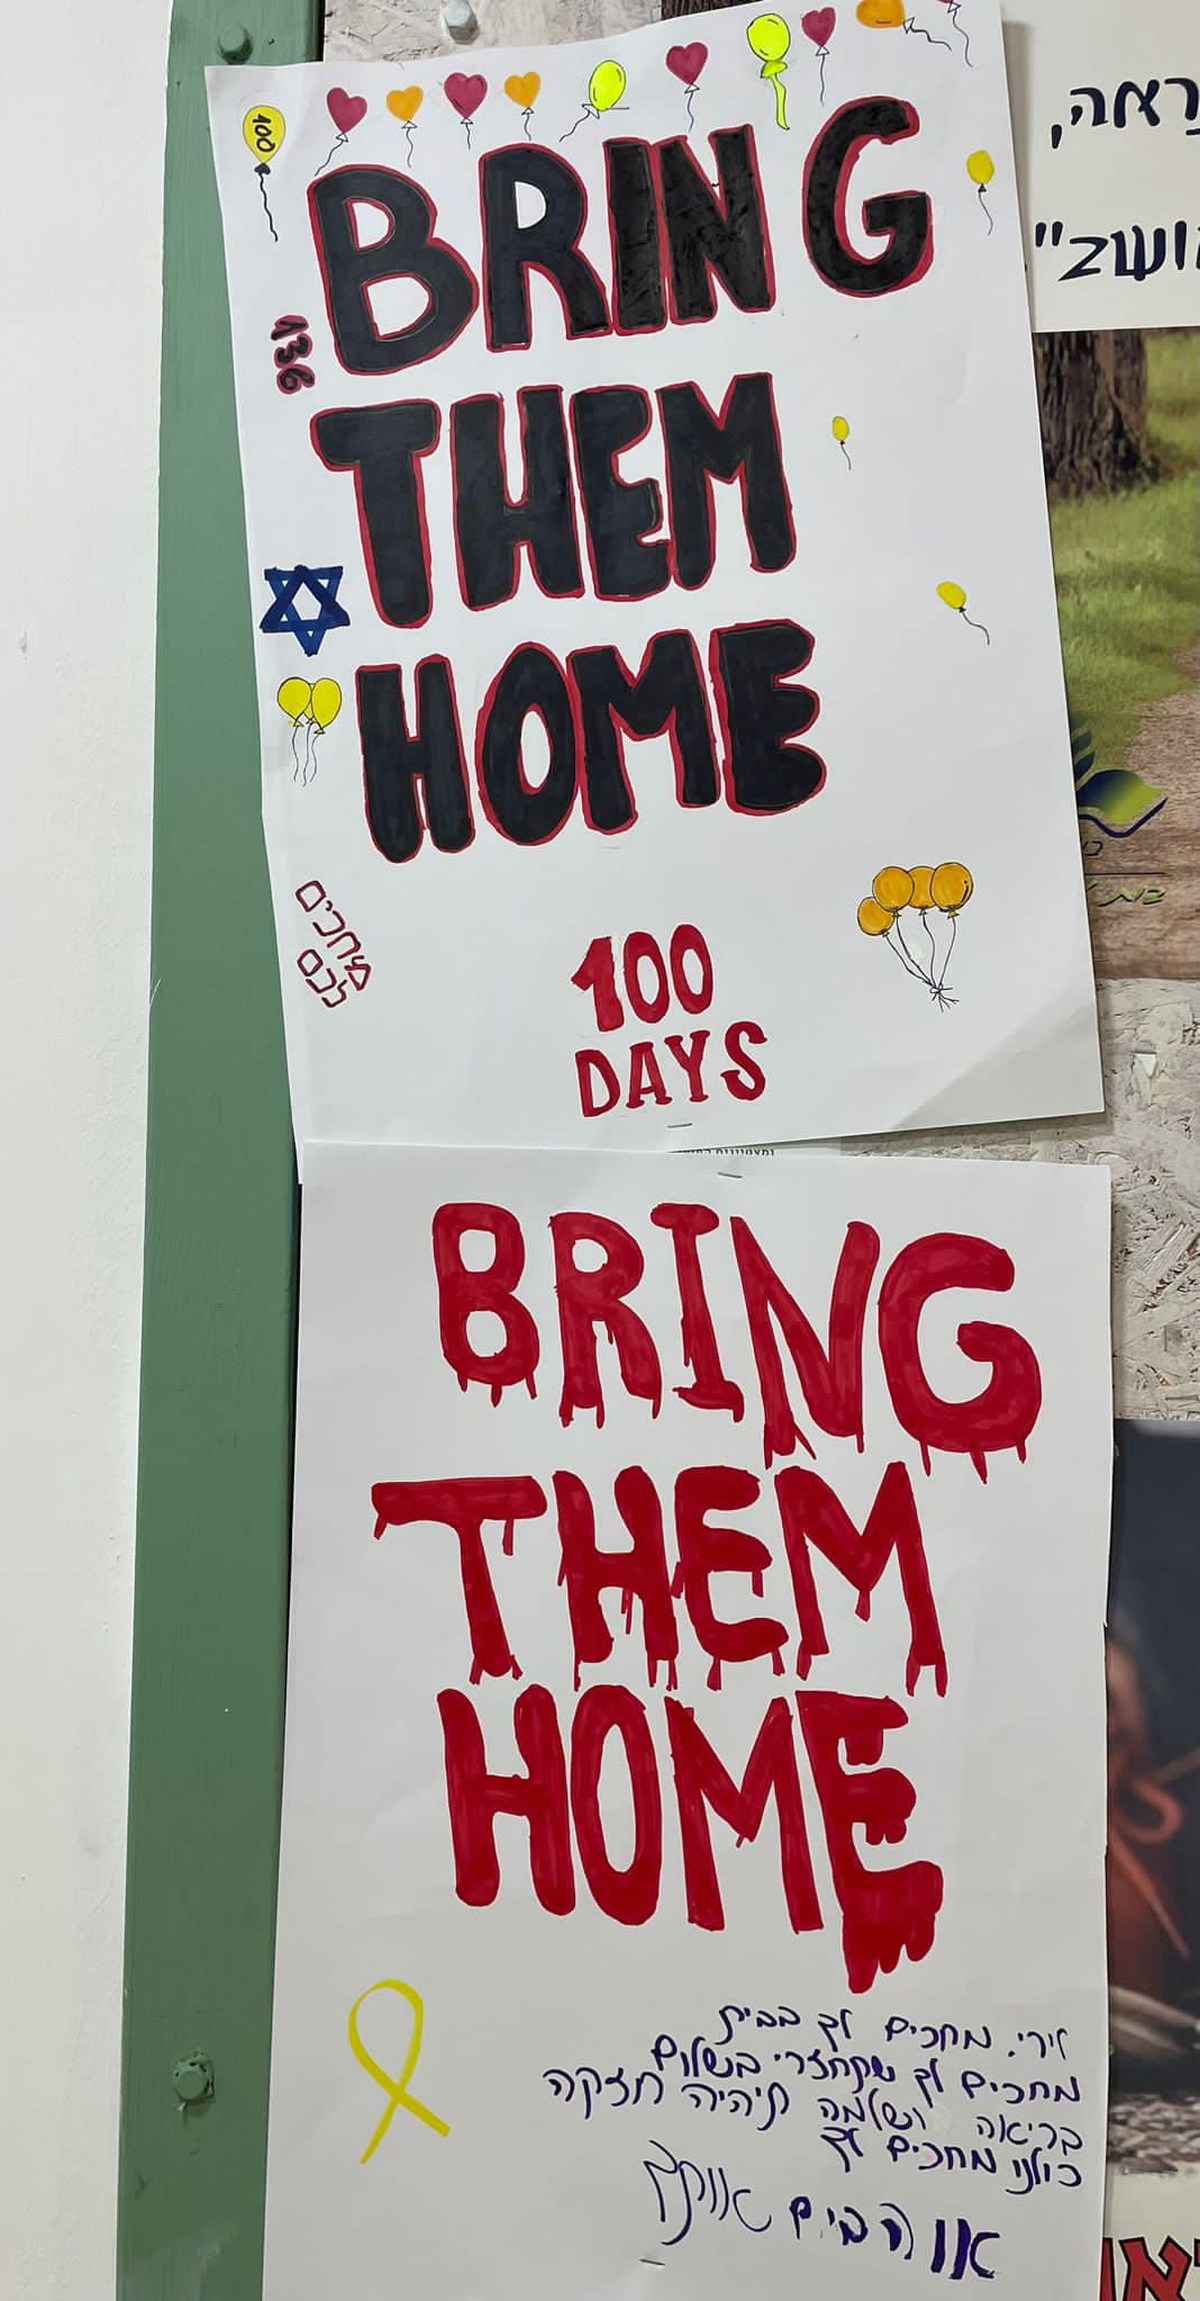 100
BRING
THEM
HOME
136
מחכים
לכם
100
DAYS
BRING
THEM
HOME
לירי. מחכים לך בבית
מחכים לך שתחזרי בשלום
בריאה ושלמה תיהיה חזקה
כולנו מחכים לך
אוהבים אותך
נראה,
מושב"